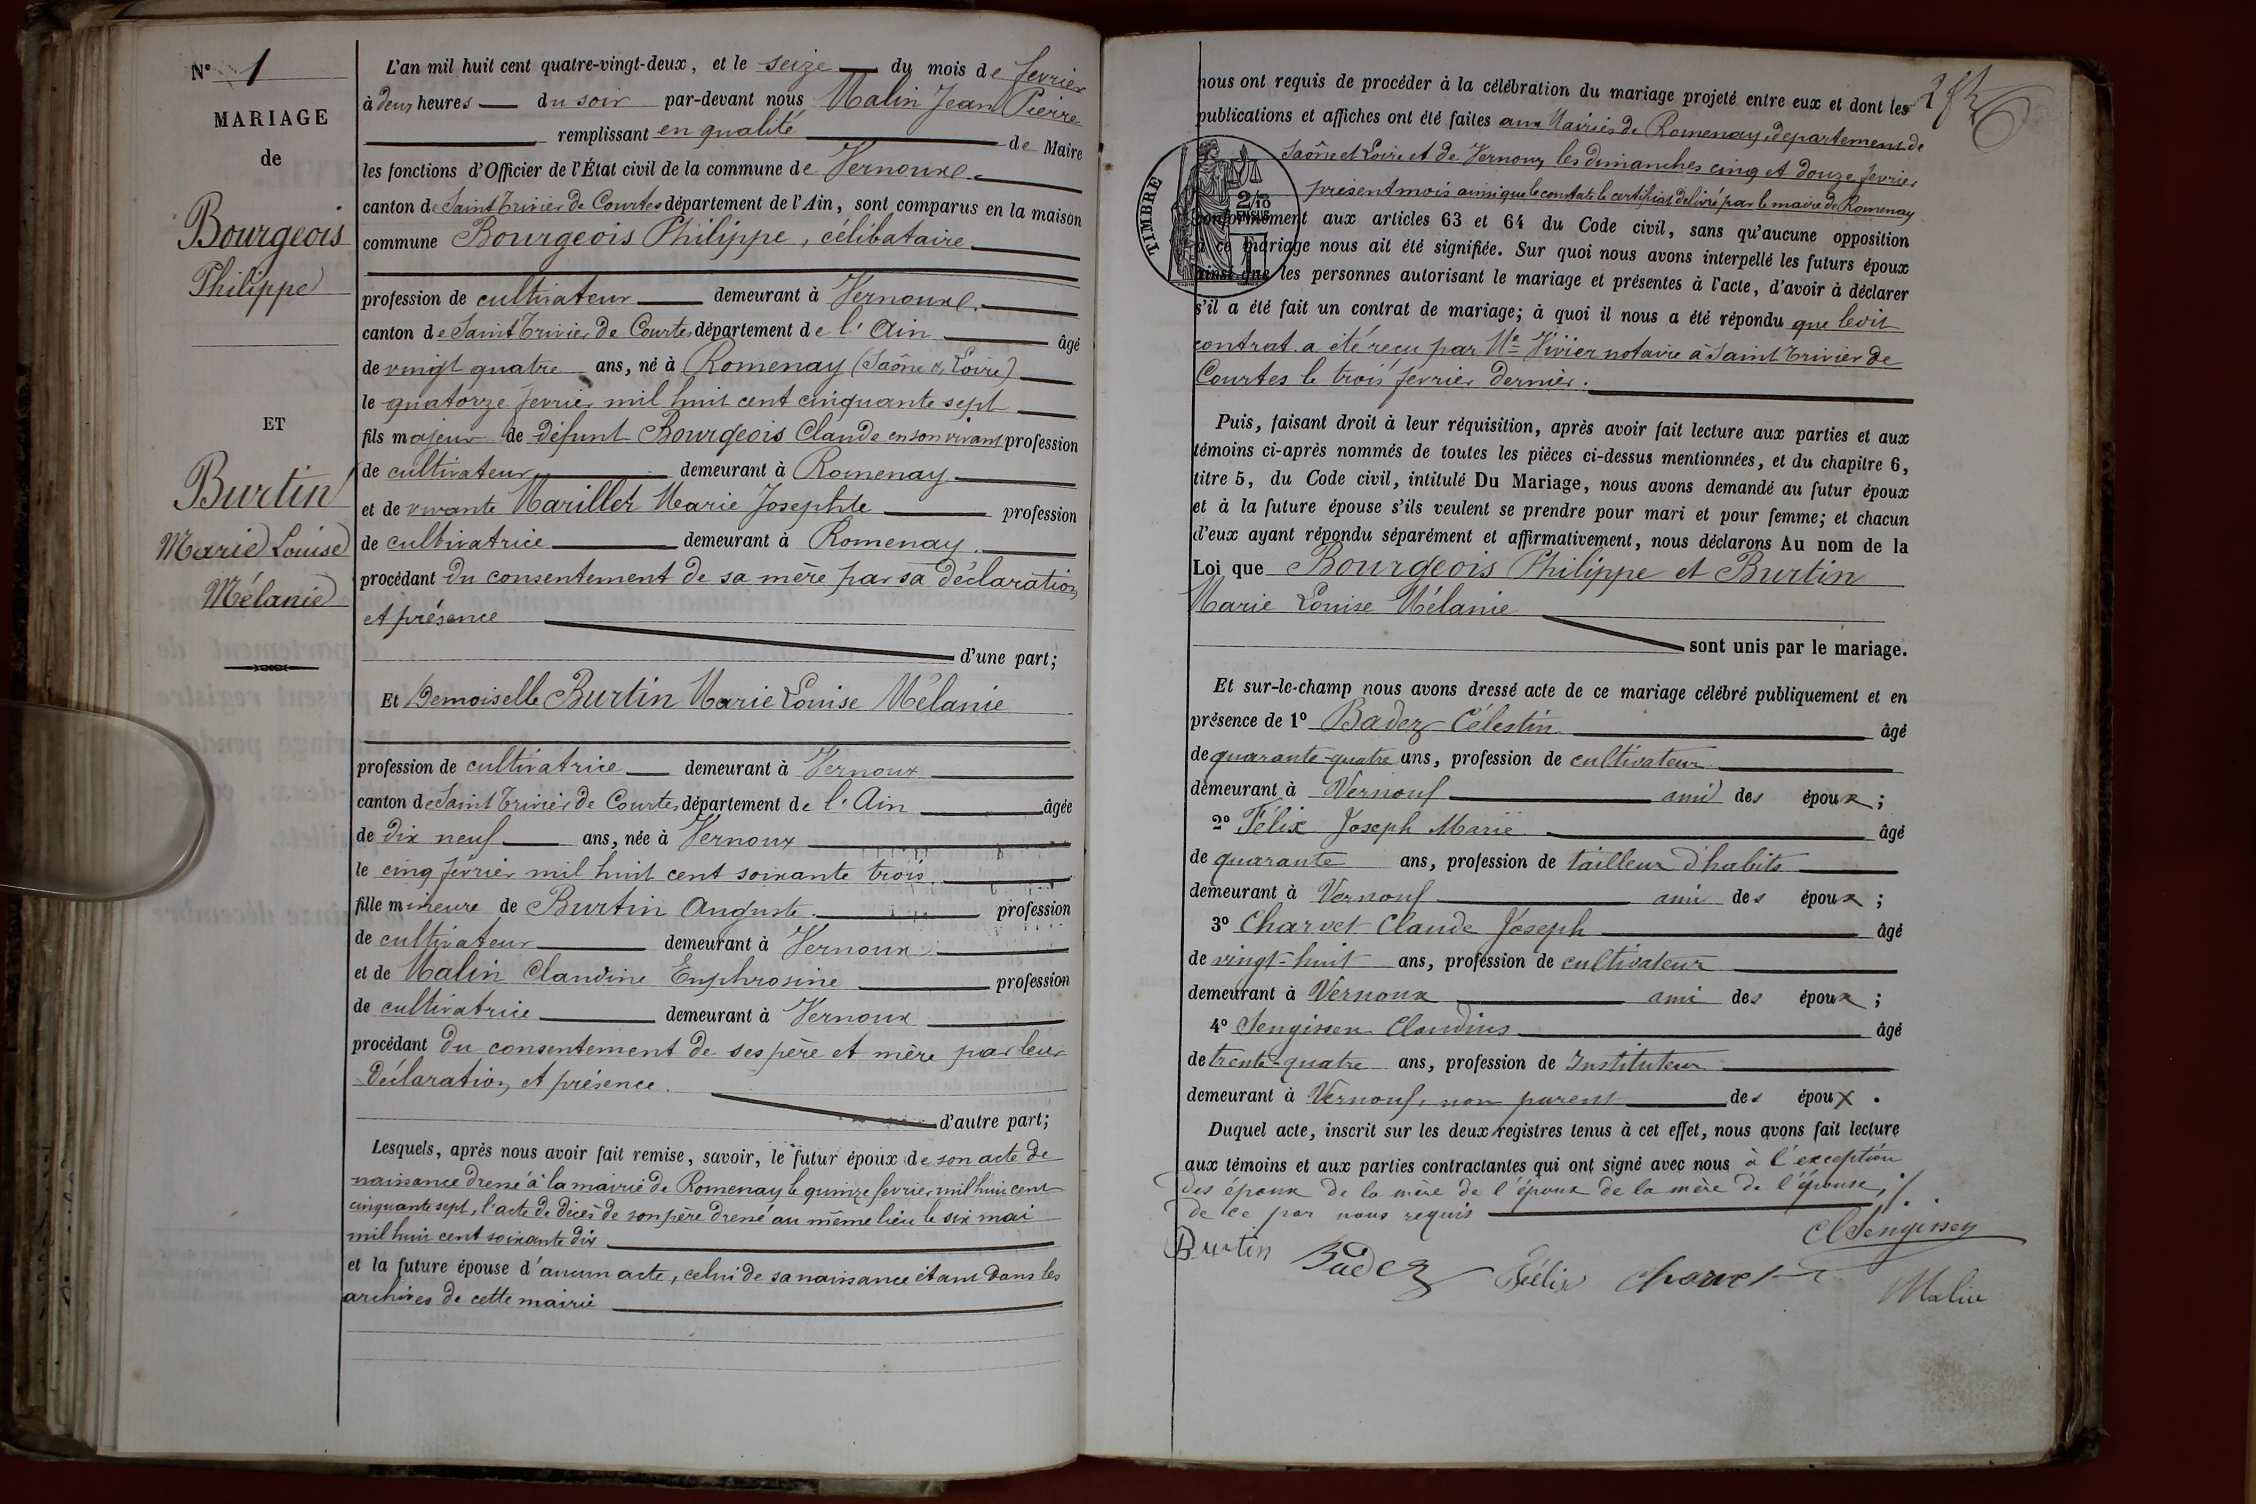 N° 1
MARIAGE
de
Bourgeois
Philippe
ET
Burtin
Marie Louise
Mélanie
L'an mil huit cent quatre-vingt-deux, et le seize du mois de fevrier
à deux heures du soir par-devant nous Malin Jean Pierre
remplissant en qualité de Maire
les fonctions d'Officier de l'État civil de la commune de Vernoux
canton de Saint Trivier de Courtes département de l'Ain, sont comparus en la maison
commune Bourgeois Philippe, célibataire
profession de cultivateur demeurant à Vernoux
canton de Saint Trivier de Courtes département de l'Ain âgé
de vingt quatre ans, né à Romenay (Saône & Loire)
le quatorze fevrier mil huit cent cinquante sept
fils majeur de défunt Bourgeois Claude en son vivant profession
de cultivateur demeurant à Romenay
et de vivante Marillet Marie Josephte profession
de cultivatrice demeurant à Romenay.
procédant du consentement de sa mère par sa déclaration
et présence
d'une part;
Et Demoiselle Burtin Marie Louise Mélanie
profession de cultivatrice demeurant à Vernoux
canton de Saint Trivier de Courtes département de l'Ain âgée
de dix neuf ans, née à Vernoux
le cinq février mil huit cent soixante trois
fille mineure de Burtin Auguste profession
de cultivateur demeurant à Vernoux
et de Malin Claudine Euphrosine profession
de cultivatrice demeurant à Vernoux
procédant du consentement de ses père et mère par leur
déclaration et présence.
d'autre part;
Lesquels, après nous avoir fait remise, savoir, le futur époux de son acte de
naissance dressé à la mairie de Romenay le quinze fevrier mil huit cent
cinquante sept, l'acte de décès de son père dressé au même lieu le six mai
mil huit cent soixante dix
et la future épouse d'aucun acte, celui de sa naissance étant dans les
archives de cette mairie
nous ont requis de procéder à la célébration du mariage projeté entre eux et dont les
publications et affiches ont été faites aux Mairies de Romenay, departement de
Saône et Loire et de Vernoux les dimanches cinq et douze fevrier
présent mois ainsi que le constate le certificat délivré par le maire de Romenay
TIMBRE
2/10
EN SUS
conformément aux articles 63 et 64 du Code civil, sans qu'aucune opposition
à ce mariage nous ait été signifiée. Sur quoi nous avons interpellé les futurs époux
ainsi que les personnes autorisant le mariage et présentes à l'acte, d'avoir à déclarer
s'il a été fait un contrat de mariage; à quoi il nous a été répondu que le dit
contrat a été reçu par Me Vivier notaire à Saint Trivier de
Courtes le trois fevrier dernier.
Puis, faisant droit à leur réquisition, après avoir fait lecture aux parties et aux
témoins ci-après nommés de toutes les pièces ci-dessus mentionnées, et du chapitre 6,
titre 5, du Code civil, intitulé Du Mariage, nous avons demandé au futur époux
et à la future épouse s'ils veulent se prendre pour mari et pour femme; et chacun
d'eux ayant répondu séparément et affirmativement, nous déclarons Au nom de la
Loi que Bourgeois Philippe et Burtin
Marie Louise Mélanie
sont unis par le mariage.
Et sur-le-champ nous avons dressé acte de ce mariage célébré publiquement et en
présence de 1° Badez Célestin âgé
de quarante-quatre ans, profession de cultivateur
demeurant à Vernoux ami des époux;
2° Félix Joseph Marie âgé
de quarante ans, profession de tailleur d'habits
demeurant à Vernoux ami des époux;
3° Charvet Claude Joseph âgé
de vingt-huit ans, profession de cultivateur
demeurant à Vernoux ami des époux;
4° Claudius âgé
de trente-quatre ans, profession de Instituteur
demeurant à Vernoux, non parent des époux.
Duquel acte, inscrit sur les deux registres tenus à cet effet, nous avons fait lecture
aux témoins et aux parties contractantes qui ont signé avec nous à l'exception
des époux de la mère de l'époux de la mère de l'épouse,
de ce par nous requis
Burtin Badez Félix Charvet
Malin